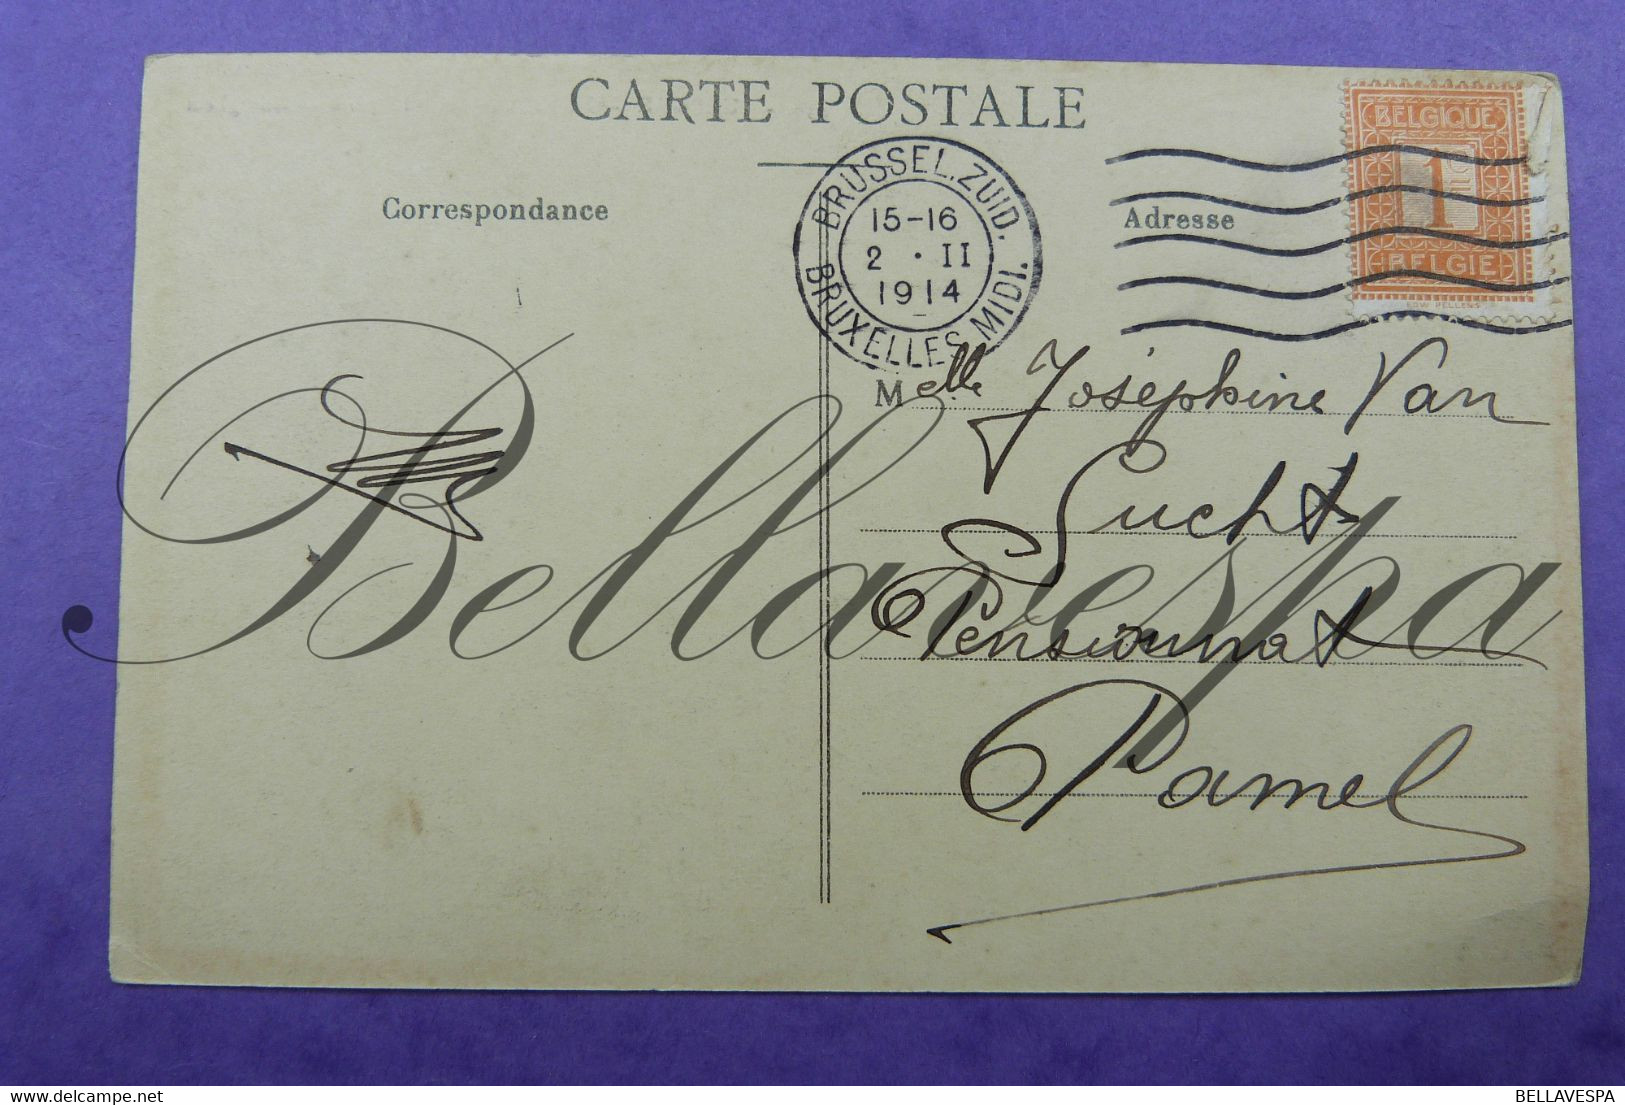 CARTE POSTALE
Correspondance
BRUSSEL.ZUID.
15-16
2 · II
1914
BRUXELLES MIDI.
Adresse
BELGIQUE
1
BELGIE
EDW PELLENS
Melle Joséphine Van
Lucht
Pensionnat
Pamel
Bellavespa
BELLAVESPA